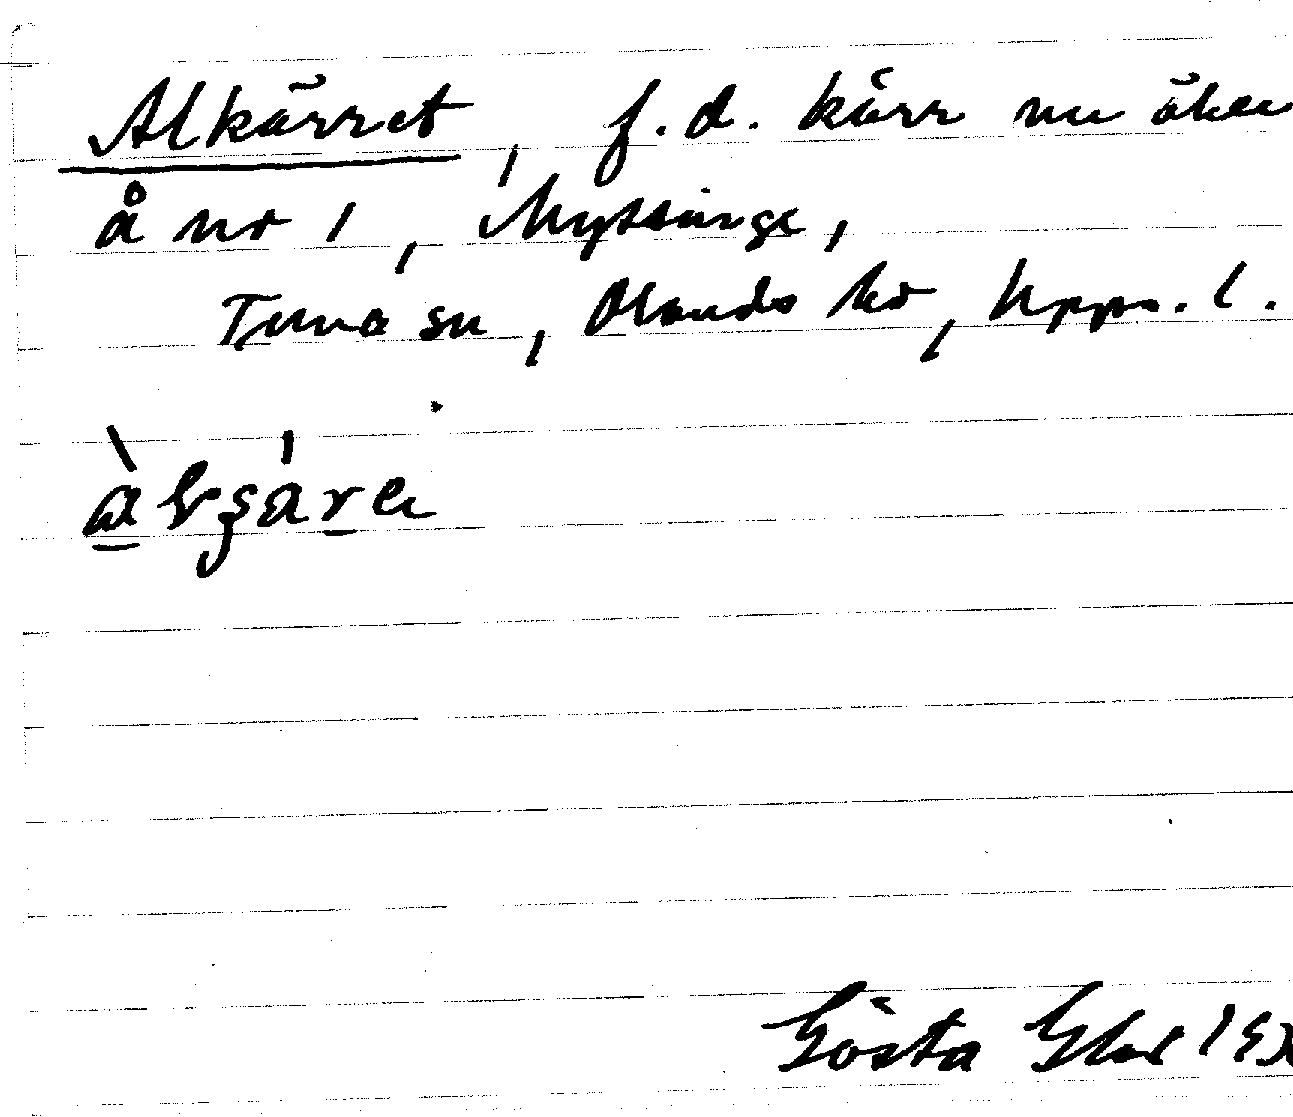 Alkärret, f.d. kärr nu åker
å nr 1, Myssinge,
Tuna sn, Olands hd, Upps. l.
Gösta